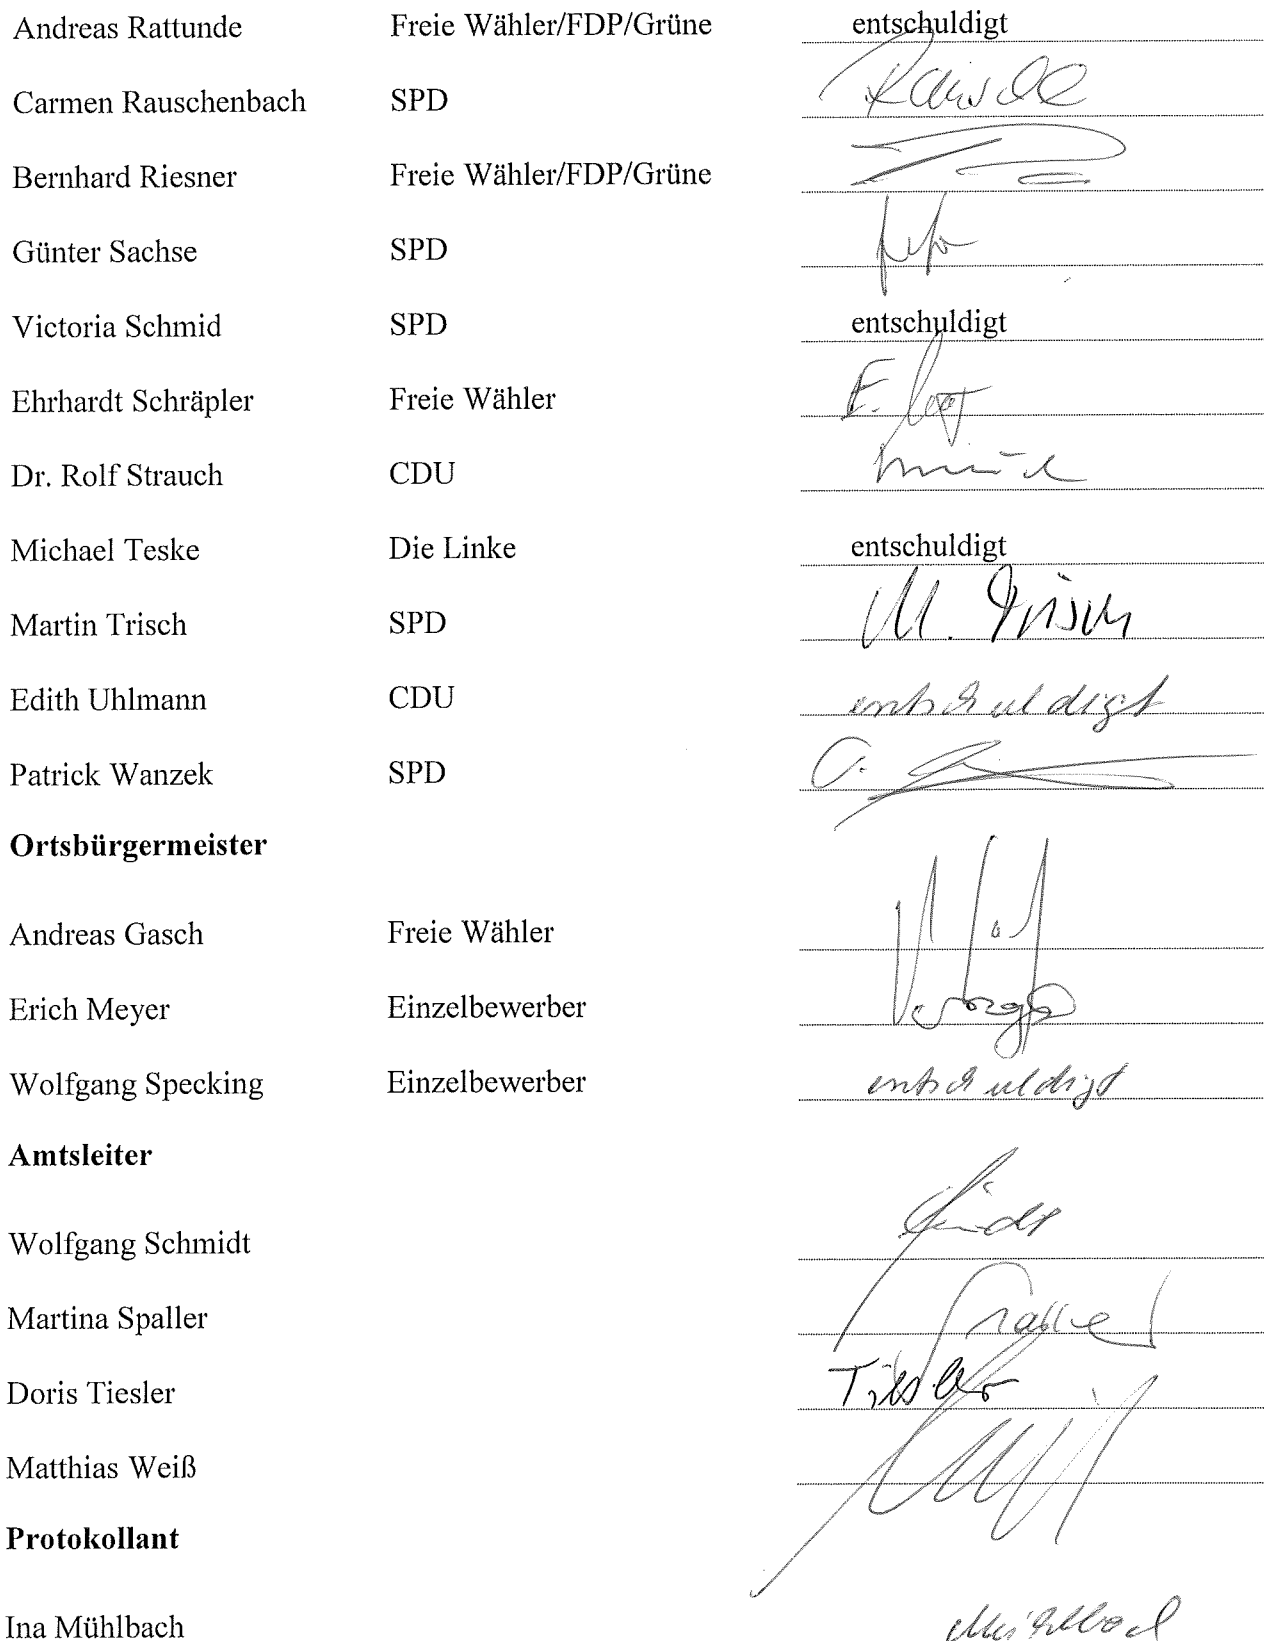 Andreas Rattunde Freie Wähler/FDP/Grüne entschuldigt
Carmen Rauschenbach SPD
Bernhard Riesner Freie Wähler/FDP/Grüne
Günter Sachse SPD
Victoria Schmid SPD entschuldigt
Ehrhardt Schräpler Freie Wähler E.
Dr. Rolf Strauch CDU
Michael Teske Die Linke entschuldigt
Martin Trisch SPD M. Trisch
Edith Uhlmann CDU entschuldigt
Patrick Wanzek SPD
Ortsbürgermeister
Andreas Gasch Freie Wähler
Erich Meyer Einzelbewerber
Wolfgang Specking Einzelbewerber entschuldigt
Amtsleiter
Wolfgang Schmidt
Martina Spaller
Doris Tiesler Tiesler
Matthias Weiß
Protokollant
Ina Mühlbach Mühlbach